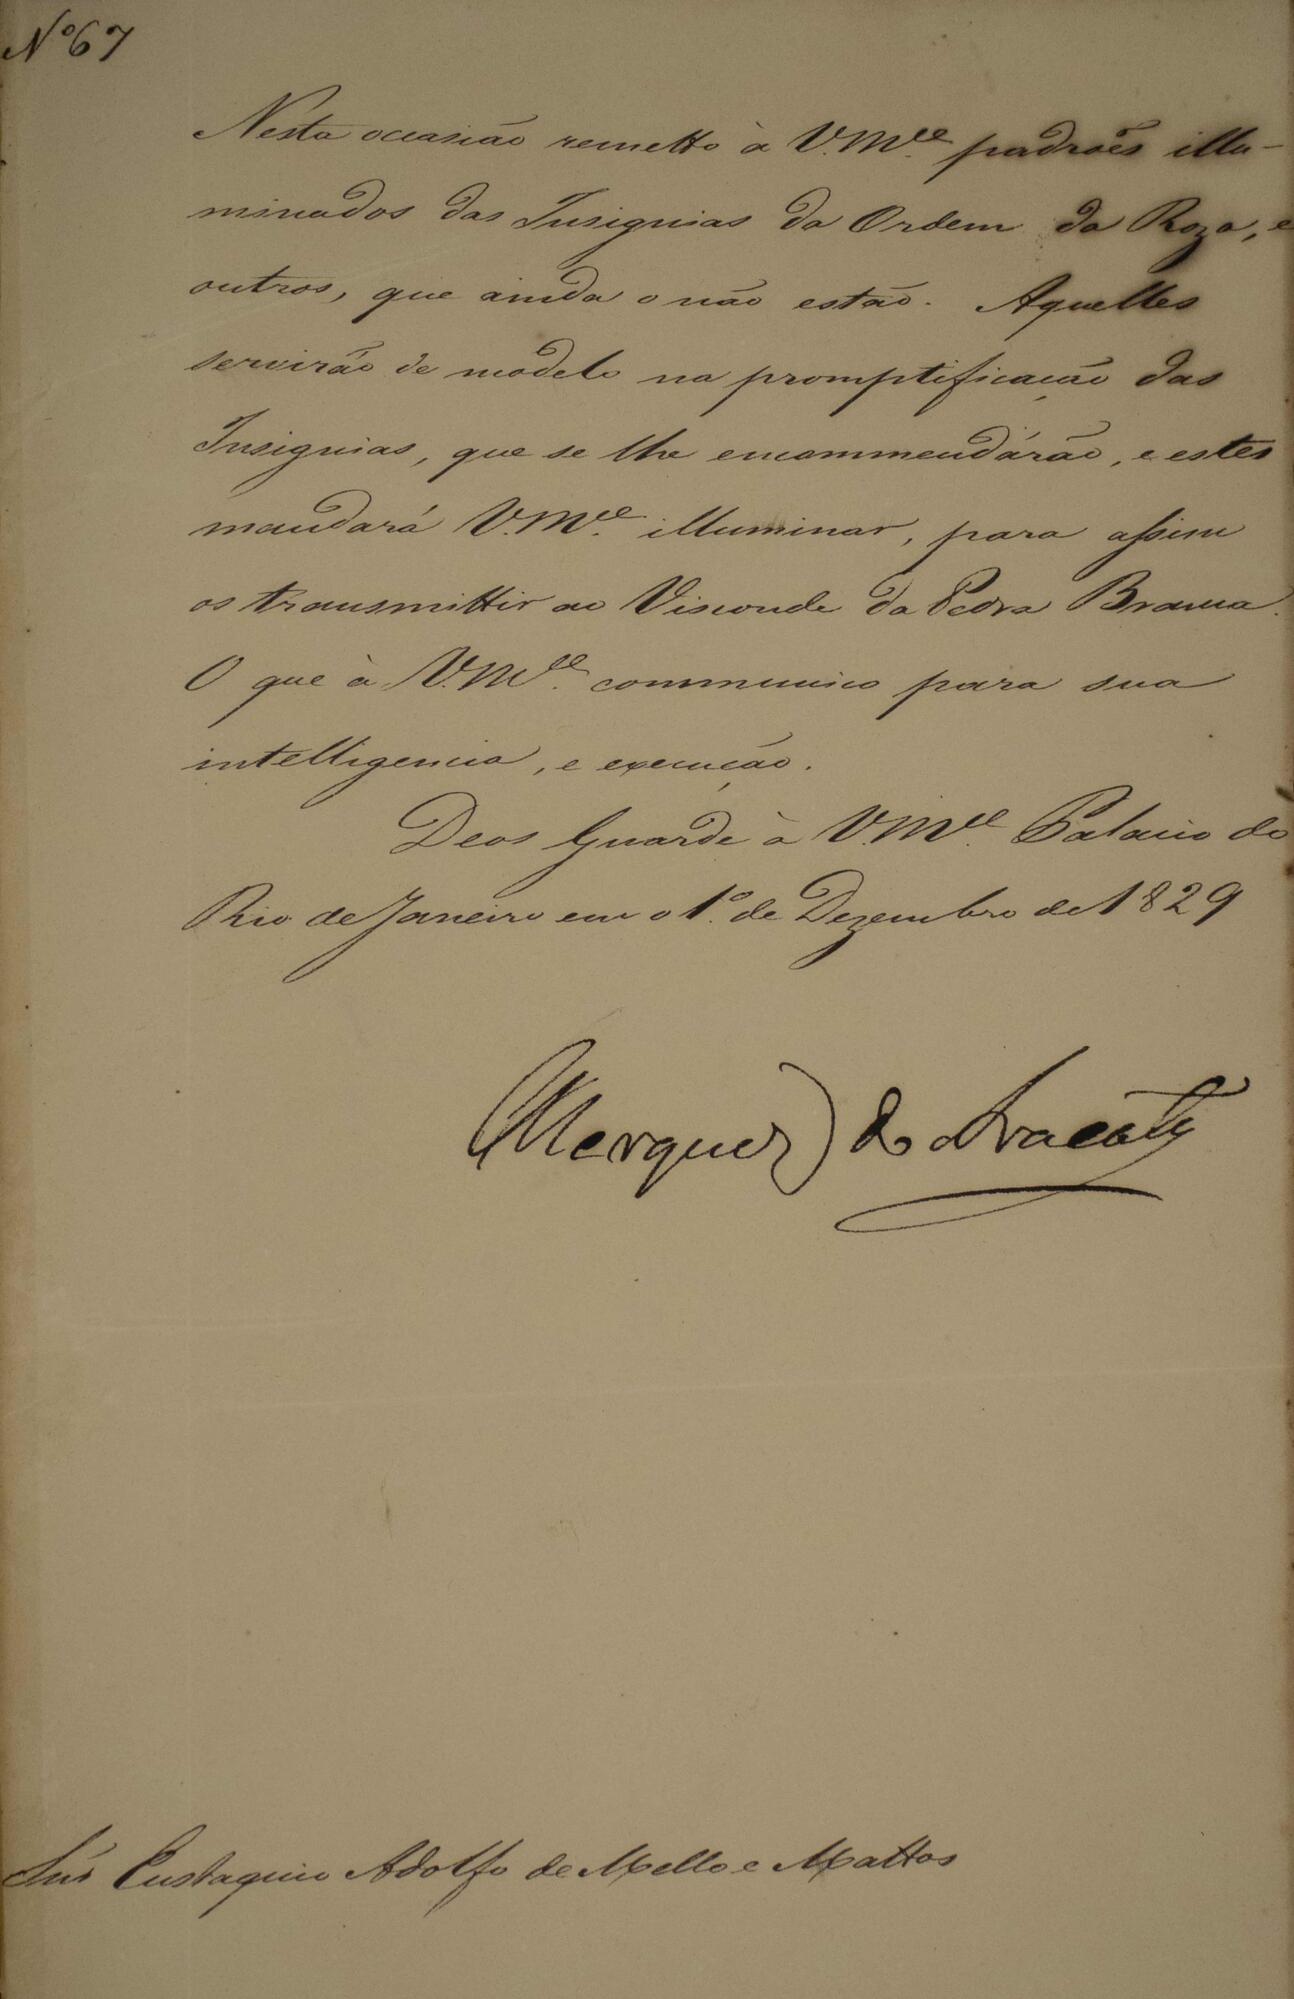 Nº 67
Nesta occasião remetto à V.M.ce padroẽs illu-
minados das Insignias da Ordem da Roza, e
outros, que ainda o não estão. Aquelles
servirão de modelo na promptificação das
Insignias, que se lhe encommendárão, e estes
mandará V.M.ce illuminar, para assim
os transmittir ao Visconde da Pedra Branca.
O que à V.M.ce communico para sua
intelligencia, e execução.
Deos Guarde à V.M.ce Palacio do
Rio de Janeiro em o 1.º de Dezembro de 1829
Marquez de Aracaty
Snr Eustaquio Adolfo de Mello e Mattos